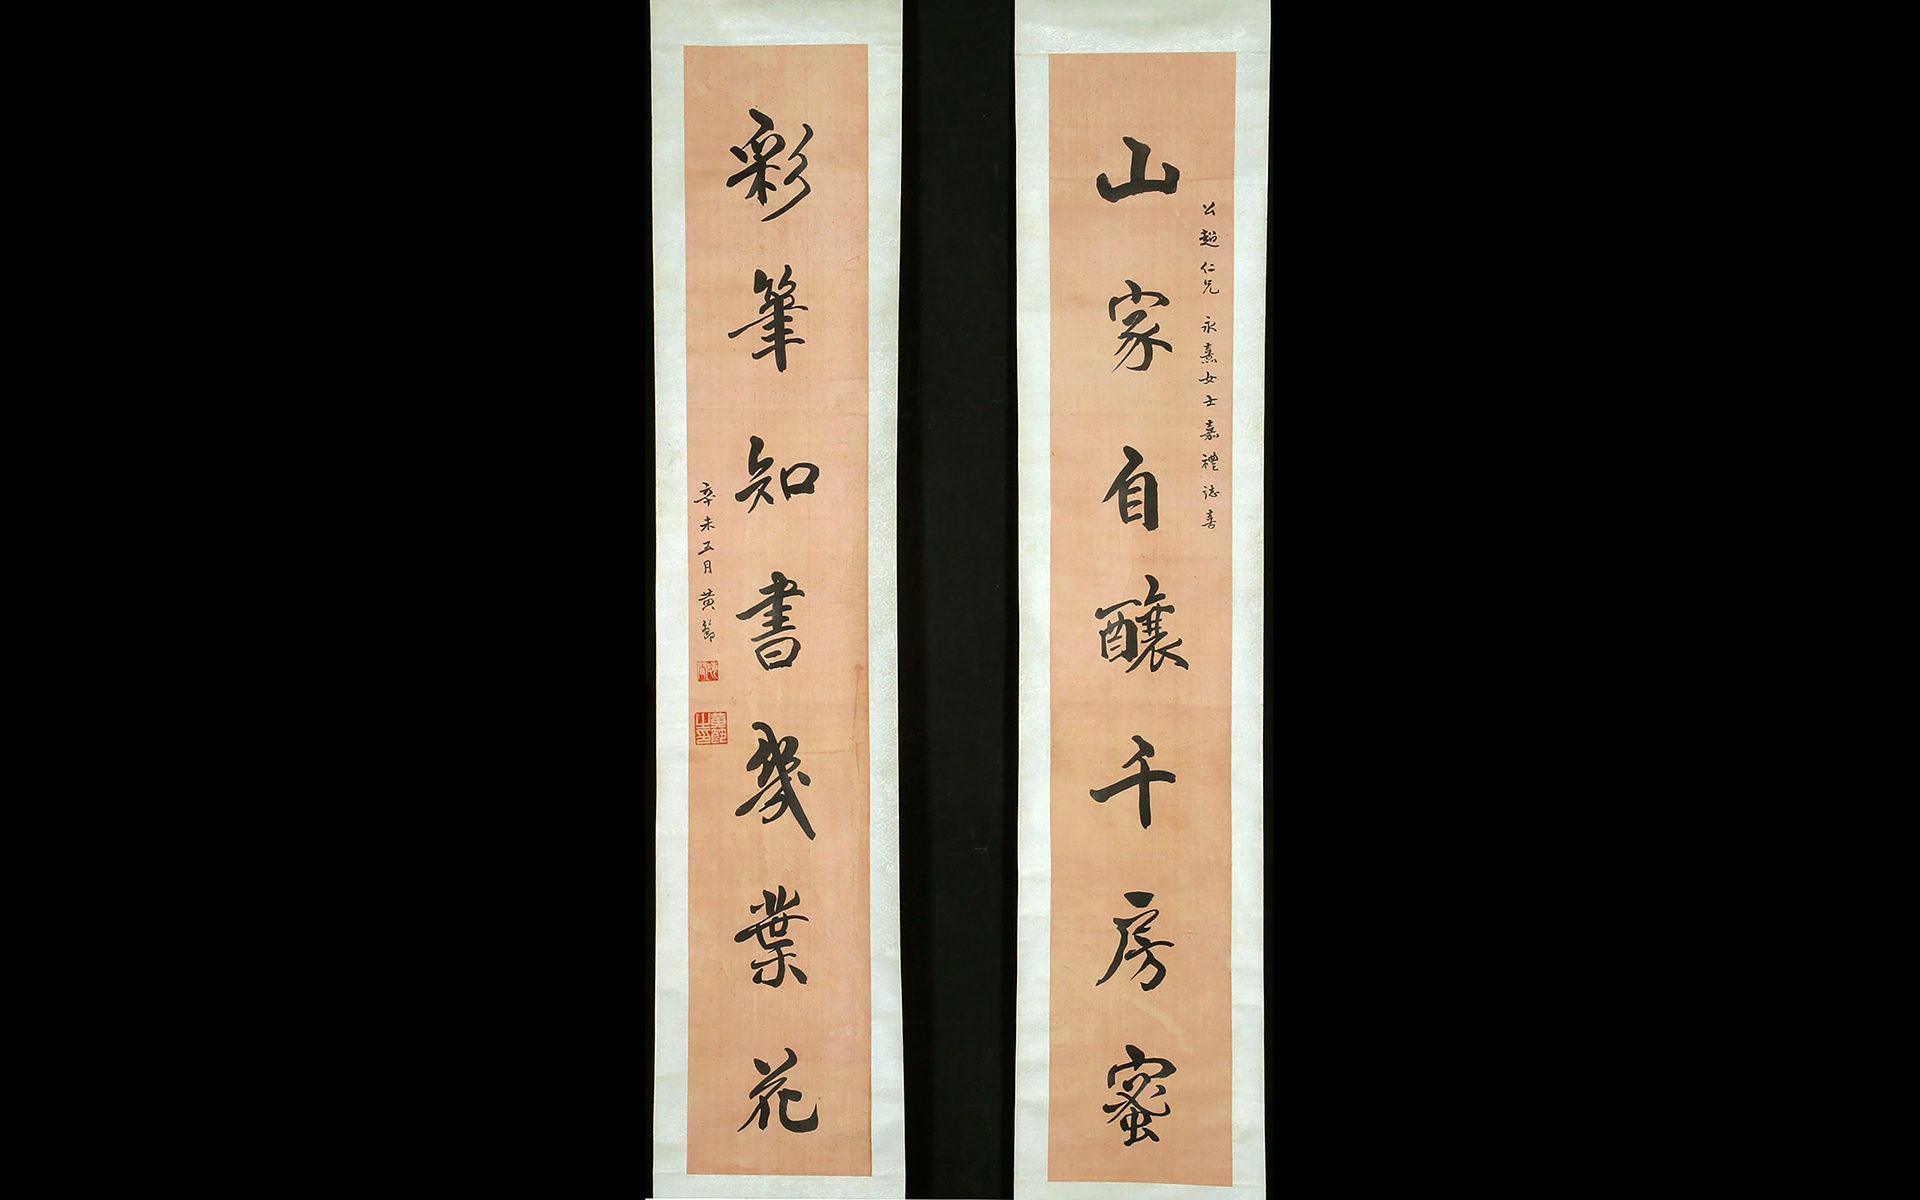 公超仁兄 永熹女士嘉禮誌喜
山家自釀千房蜜
彩筆知書幾葉花
辛未五月 黃節
黃節之印